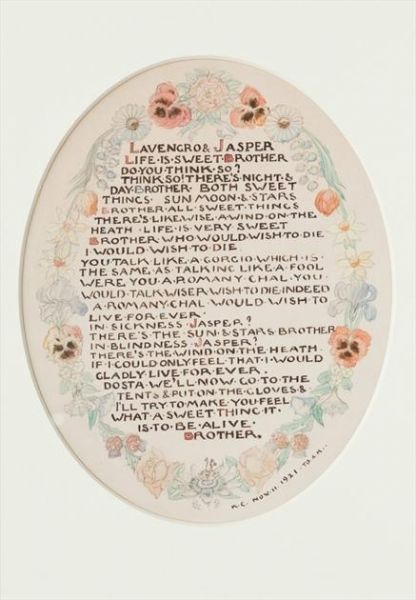 LAVENGRO & JASPER
LIFE·IS·SWEET·BROTHER
DO·YOU·THINK·SO?
THINK·SO! THERE'S·NIGHT·&
DAY·BROTHER· BOTH SWEET
THINGS· SUN MOON & STARS
BROTHER·ALL·SWEET·THINGS
THERE'S·LIKEWISE·A·WIND·ON·THE
HEATH·LIFE·IS·VERY SWEET
BROTHER WHO WOULD WISH TO DIE
I WOULD WISH TO DIE
YOU TALK LIKE·A·GORGIO·WHICH·IS·
THE·SAME·AS·TALKING LIKE·A·FOOL
WERE YOU·A·ROMANY·CHAL·YOU·
WOULD·TALK·WISER·WISH·TO·DIE·INDEED
A·ROMANY·CHAL·WOULD WISH TO
LIVE·FOR·EVER·
IN·SICKNESS·JASPER?
THERE'S·THE·SUN·&·STARS·BROTHER
IN·BLINDNESS·JASPER?
THERE'S·THE·WIND·ON·THE HEATH
IF·I·COULD·ONLY·FEEL·THAT·I·WOULD
GLADLY·LIVE·FOR·EVER·
DOSTA·WE'LL·NOW·GO·TO·THE
TENTS·&·PUT·ON·THE·GLOVES·&
I'LL TRY·TO·MAKE·YOU·FEEL
WHAT·A·SWEET·THING·IT·
IS·TO·BE·ALIVE·
BROTHER.
NOV. 11. 1921.